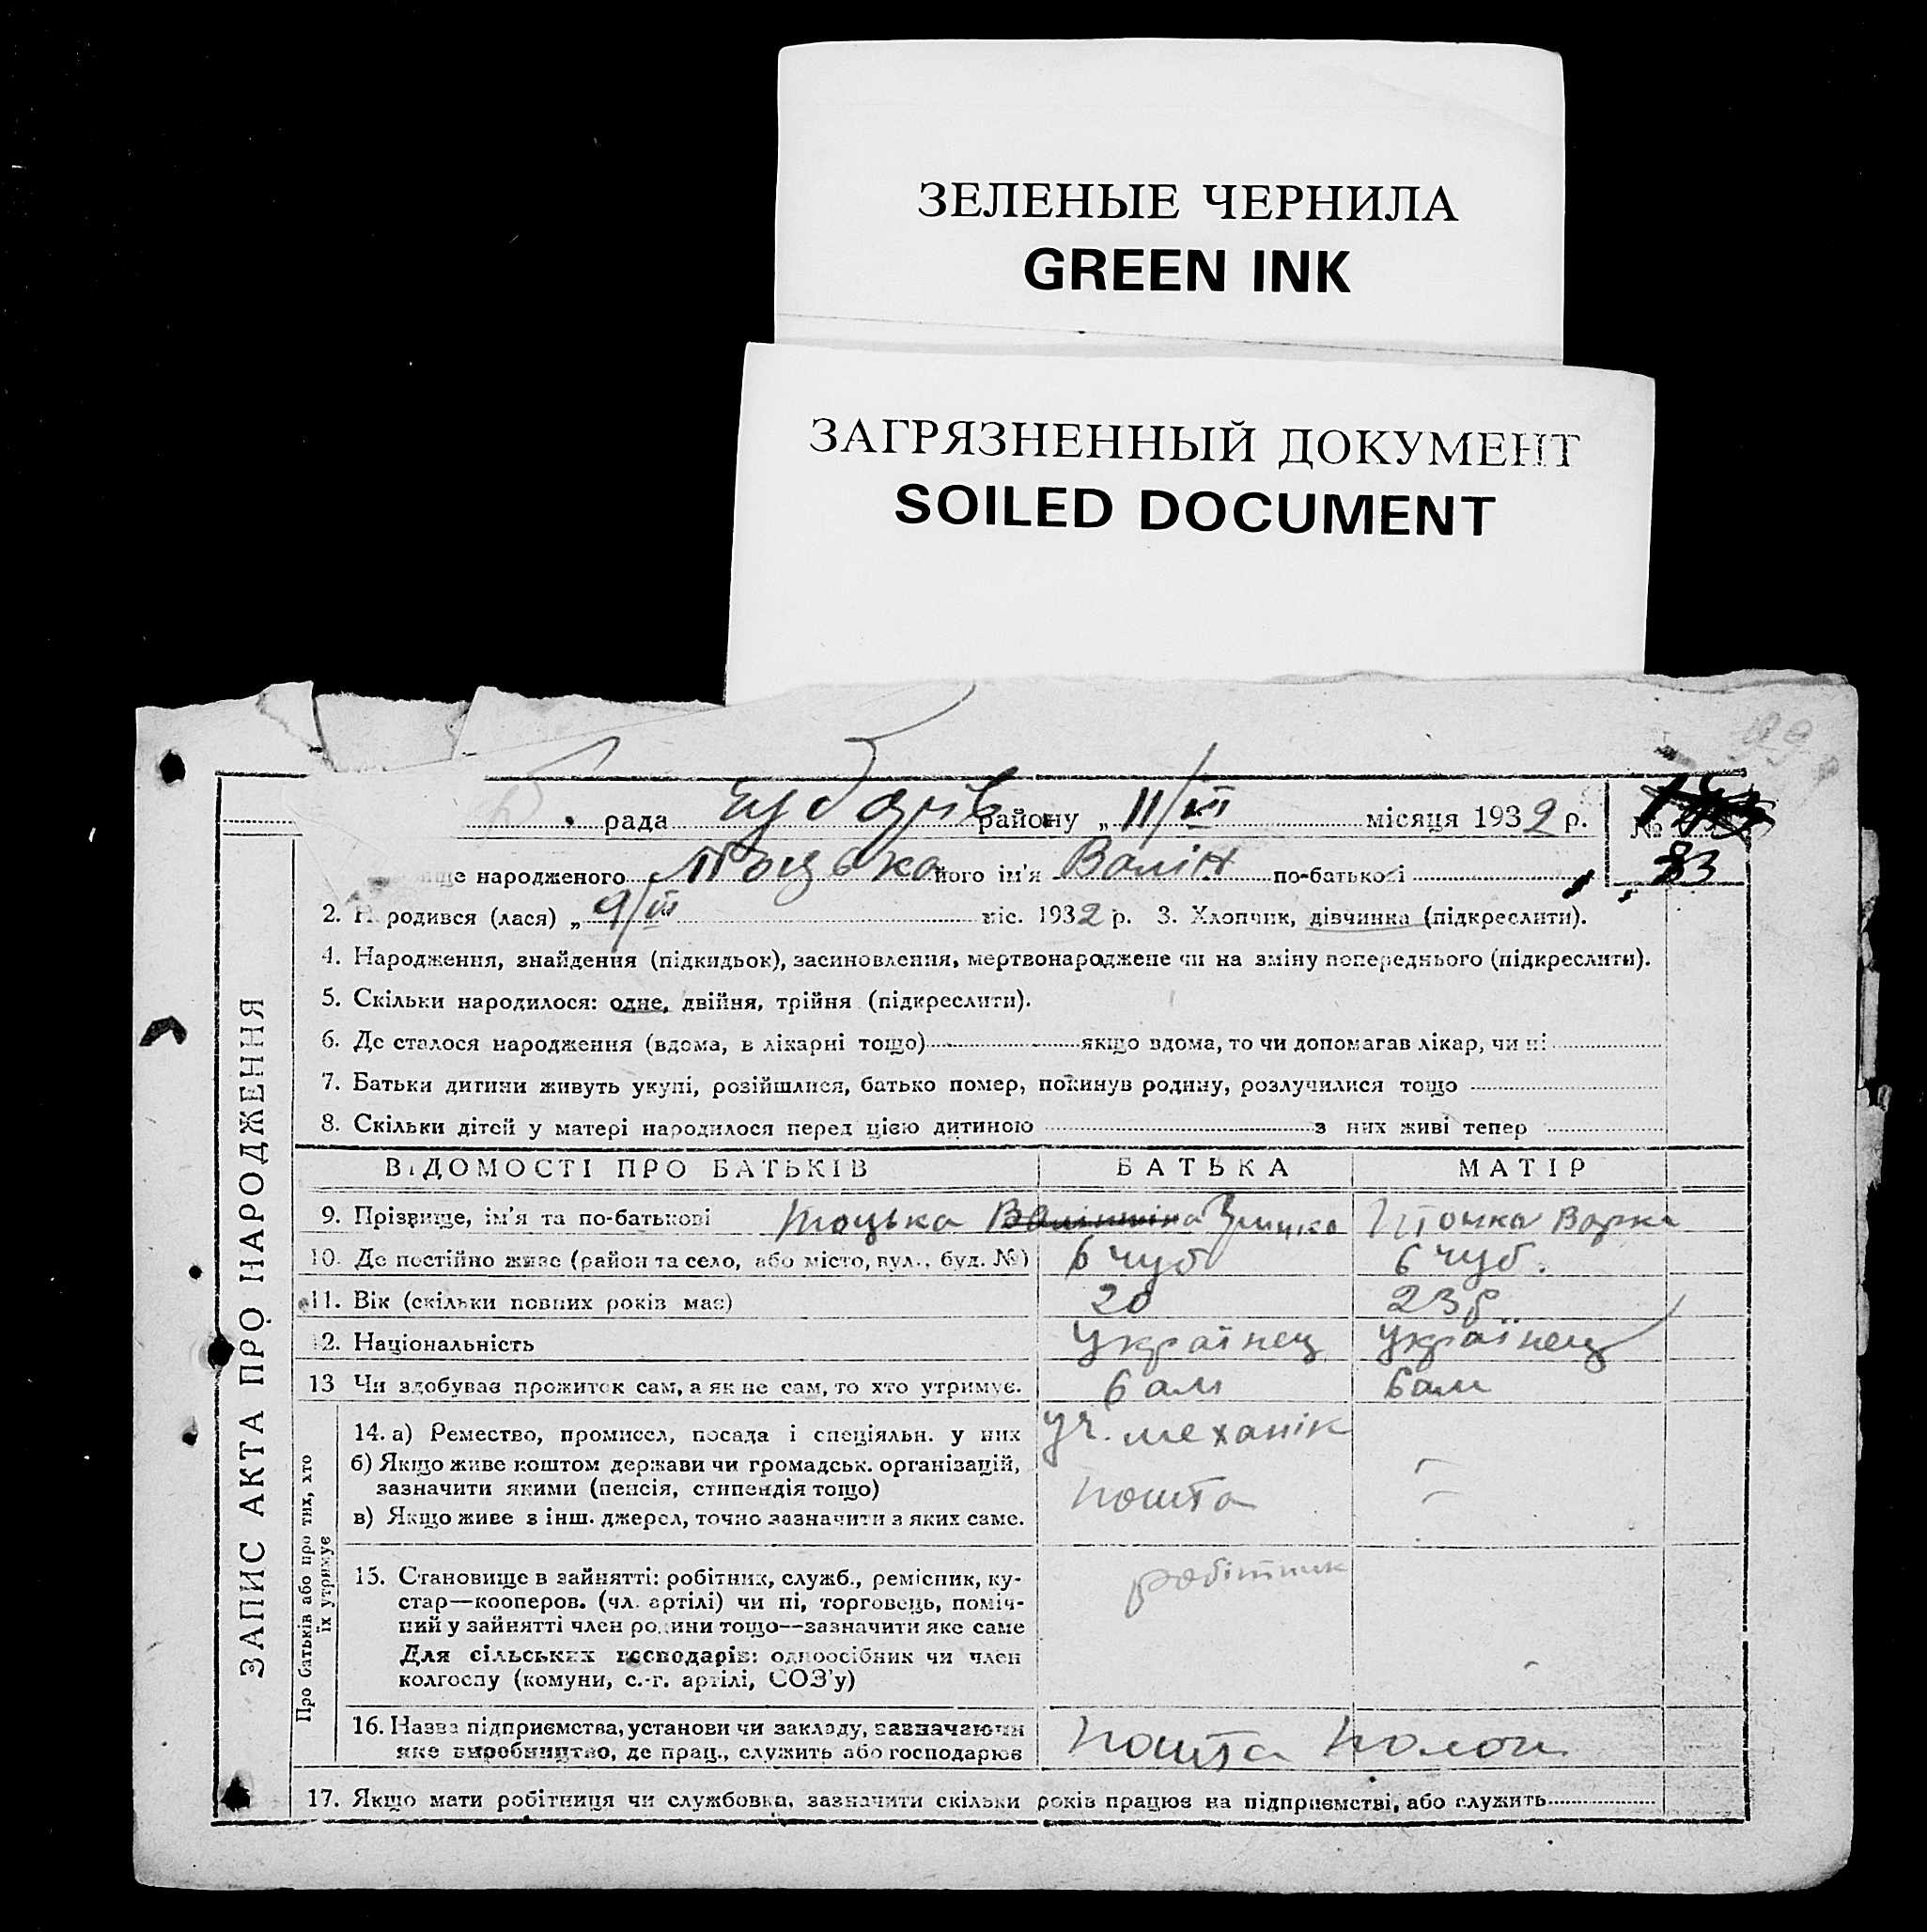 ЗЕЛЕНЫЕ ЧЕРНИЛА
GREEN INK
ЗАГРЯЗНЕННЫЙ ДОКУМЕНТ
SOILED DOCUMENT
99
рада району „ 11/VI місяця 1932 р. №
ще народженого його ім'я по-батькові 83
2. Народився (лася) „ 9/ міс. 1932 р. 3. Хлопчик, дівчинка (підкреслити).
4. Народження, знайдення (підкидьок), засиновлення, мертвонароджене чи на зміну попереднього (підкреслити).
5. Скільки народилося: одне, двійня, трійня (підкреслити).
6. Де сталося народження (вдома, в лікарні тощо) якщо вдома, то чи допомагав лікар, чи ні
7. Батьки дитини живуть укупі, розійшлися, батько помер, покинув родину, розлучилися тощо
8. Скільки дітей у матері народилося перед цією дитиною з них живі тепер
ЗАПИС АКТА ПРО НАРОДЖЕННЯ
ВІДОМОСТІ ПРО БАТЬКІВ БАТЬКА МАТІР
9. Прізвище, ім'я та по-батькові Тоцька Варка
10. Де постійно живе (район та село, або місто, вул., буд. №) с чуб с чуб.
11. Вік (скільки повних років має) 20 23 р
12. Національність Українец Українец
13 Чи здобуває прожиток сам, а як не сам, то хто утримує. сам сам
Про батьків або про тих, хто їх утримує
14. а) Ремество, промисел, посада і спеціяльн. у них уч. механік
б) Якщо живе коштом держави чи громадськ. організацій,
зазначити якими (пенсія, стипендія тощо) пошта
в) Якщо живе з інш. джерел, точно зазначити з яких саме.
15. Становище в зайнятті: робітник, служб., ремісник, ку- робітник
стар—кооперов. (чл. артілі) чи ні, торговець, поміч-
ний у зайнятті член родини тощо—зазначити яке саме
Для сільських господарів: одноосібник чи член
колгоспу (комуни, с.-г. артілі, СОЗ'у)
16. Назва підприємства, установи чи закладу, зазначаючи
яке виробництво, де прац., служить або господарює пошта
17. Якщо мати робітниця чи службовка, зазначити скільки років працює на підприємстві, або служить